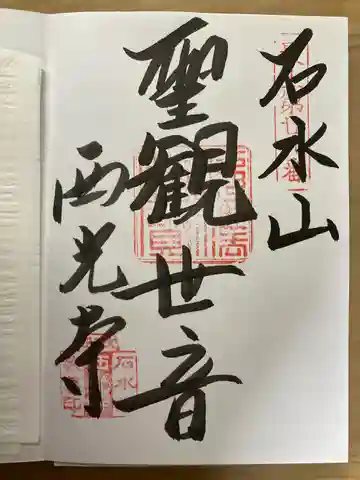 石水山
聖観世音
西光寺
石水